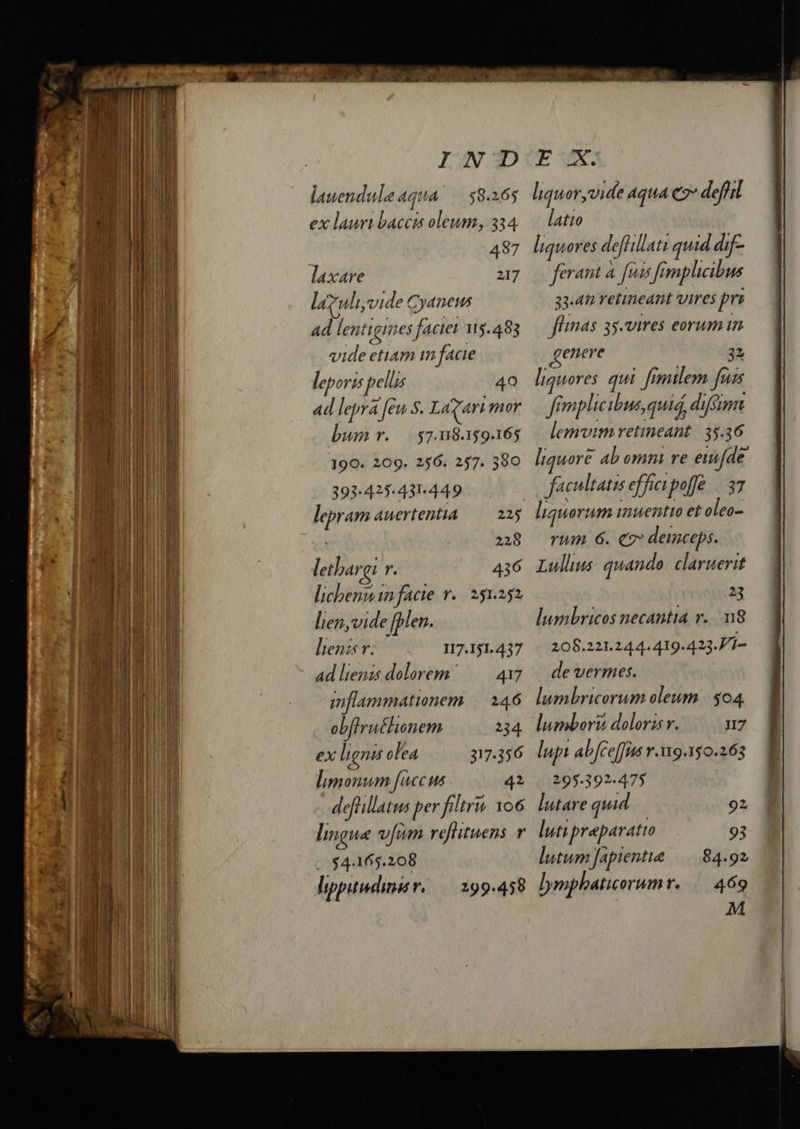 INDEX.
lauendulæ aqua 58.265
ex lauri baccis oleum, 334
487
laxare 217
lazuli, vide Cyaneus
ad lentigines faciei 115.483
vide etiam in facie
leporis pellis 40
ad leprã seu S. Lazari mor
bum r. 57.118.159.165
190. 209. 256. 257. 380
393.425.431.449
lepram auertentia 225
228
lethargi r. 436
lichenũ in facie r. 251.252
lien, vide splen.
lienis r. 117.151.437
ad lienis dolorem 417
inflammationem 246
obstructionem 234
ex lignis olea 317.356
limonum succus 42
destillatus per filtrũ 106
linguæ vsum restituens r
54.165.208
lippitudinis r. 299.458
liquor, vide aqua & destil
latio
liquores destillati quid dif-
ferant à suis simplicibus
33. an retineant vires pri
stinas 35. vires eorum in
genere 32
liquores qui similem suis
simplicibus, quiq́, dissimi
lem vim retineant 35.36
liquorẽ ab omni re eiusde
facultatis effici posse 37
liquorum inuentio et oleo-
rum 6. & deinceps.
Lullius quando claruerit
23
lumbricos necantia r. 118
208.221.244.419.423. Vi-
de vermes.
lumbricorum oleum 504
lumborũ doloris r. 117
lupi abscessus r. 119.150.263
295.392.475
lutare quid 92
luti præparatio 93
lutum sapientiæ 84.92
lymphaticorum r. 469
M